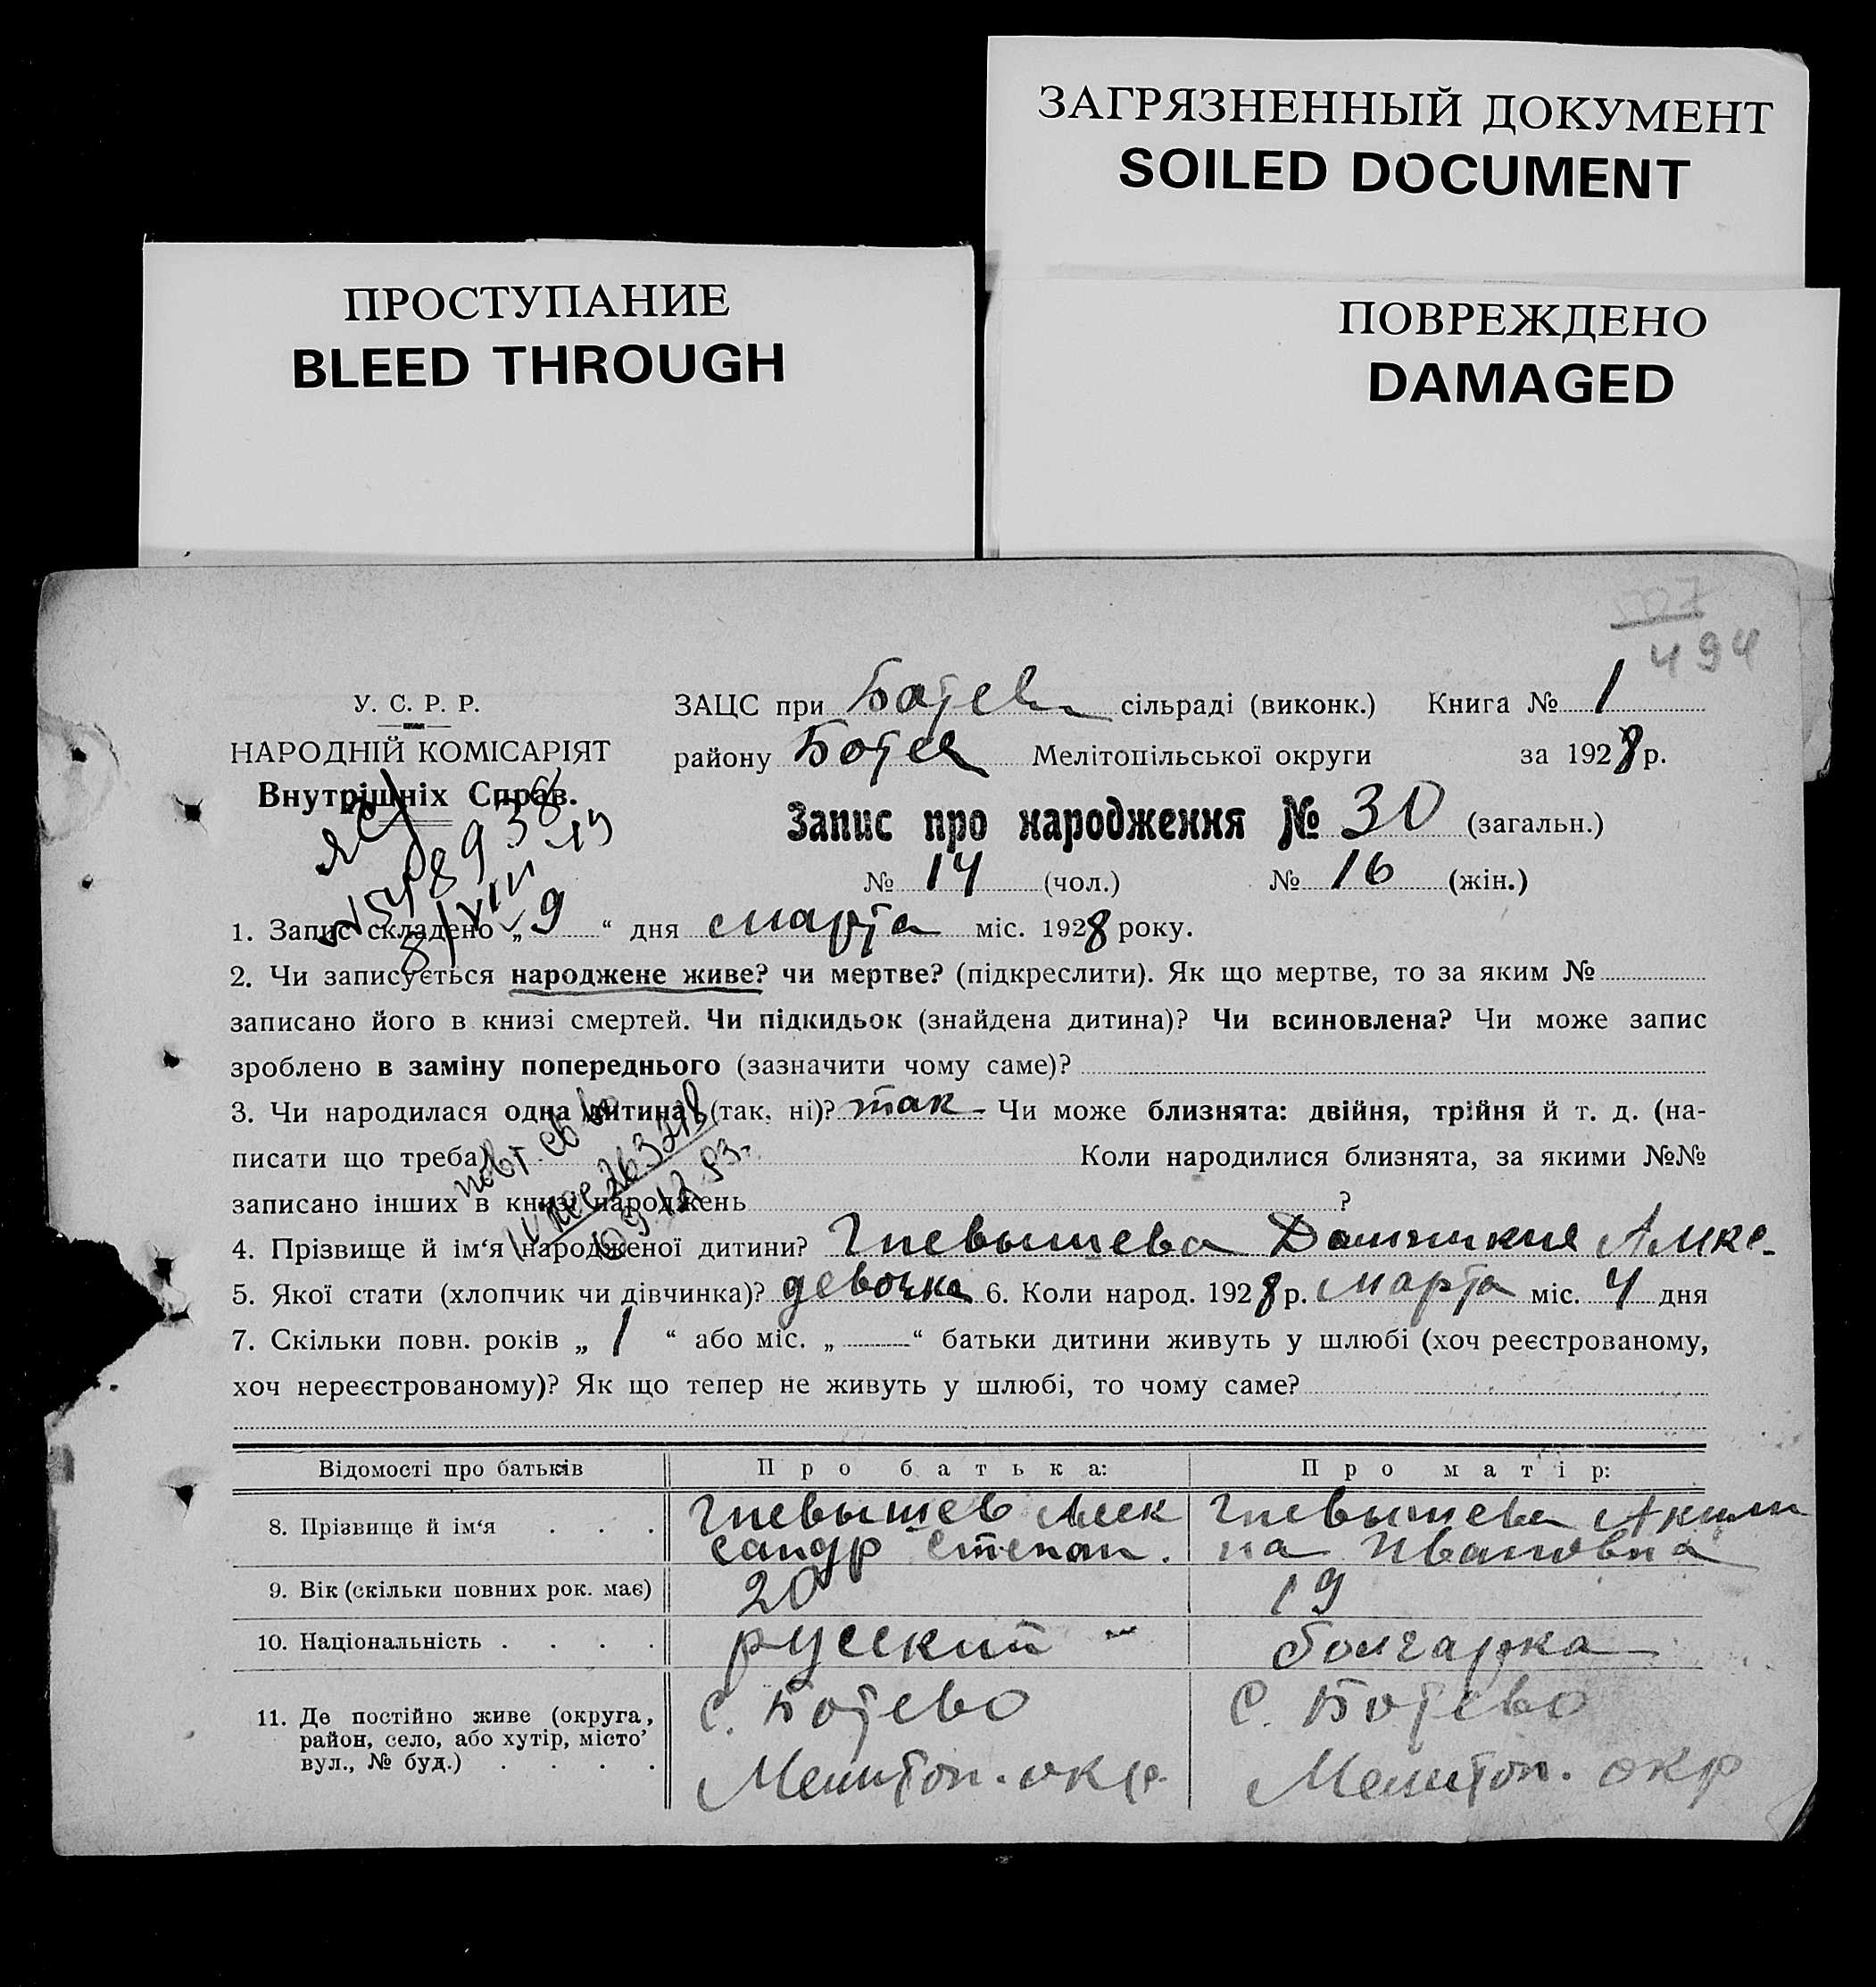 ЗАГРЯЗНЕННЫЙ ДОКУМЕНТ
SOILED DOCUMENT
ПРОСТУПАНИЕ
BLEED THROUGH
ПОВРЕЖДЕНО
DAMAGED
494
У. С. Р. Р.
НАРОДНІЙ КОМІСАРІЯТ
Внутрішніх Справ.
ЗАЦС при сільраді (виконк.) Книга № 1
району Мелітопільської округи за 1928 р.
Запис про народження № 30 (загальн.)
№ 14 (чол.) № 16 (жін.)
1. Запис складено „ 9 “ дня марта міс. 1928 року.
2. Чи записується народжене живе? чи мертве? (підкреслити). Як що мертве, то за яким №
записано його в книзі смертей. Чи підкидьок (знайдена дитина)? Чи всиновлена? Чи може запис
зроблено в заміну попереднього (зазначити чому саме)?
3. Чи народилася одна дитина (так, ні)? так Чи може близнята: двійня, трійня й т. д. (на-
писати що треба) Коли народилися близнята, за якими №№
записано інших в книзі народжень ?
4. Прізвище й ім‘я народженої дитини? Гневышева
5. Якої стати (хлопчик чи дівчинка)? девочка 6. Коли народ. 1928 р. марта міс. 4 дня
7. Скільки повн. років „ 1 “ або міс. „ “ батьки дитини живуть у шлюбі (хоч реєстрованому,
хоч нереєстрованому)? Як що тепер не живуть у шлюбі, то чому саме?
Відомості про батьків Про батька: Про матір:
8. Прізвище й ім‘я . . . Гневышев Алек
сандр Степан. Гневышева Акили
на Ивановна
9. Вік (скільки повних рок. має) 20 19
10. Національність . . . . русский болгарка
11. Де постійно живе (округа,
район, село, або хутір, місто’
вул., № буд.) . . . .
С. Ботево
Мелитоп. окр.
С. Ботево
Мелитоп. окр